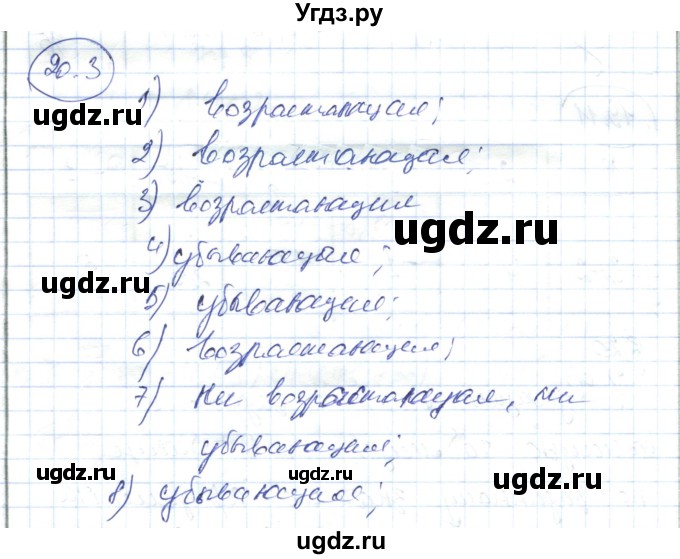 Угдз.ру
20.3
ugdz.ru
1) возрастающая;
ugdz.ru
ugdz.ru
2) возрастающая;
3) возрастающая
ugdz.ru
4) убывающая;
ugdz.ru
5) убывающая;
6) возрастающая;
ugdz.ru
ugdz.ru
7) ни возрастающая, ни
убывающая;
ugdz.ru
ugdz.ru
ugdz.ru
8) убывающая;
ugdz.ru